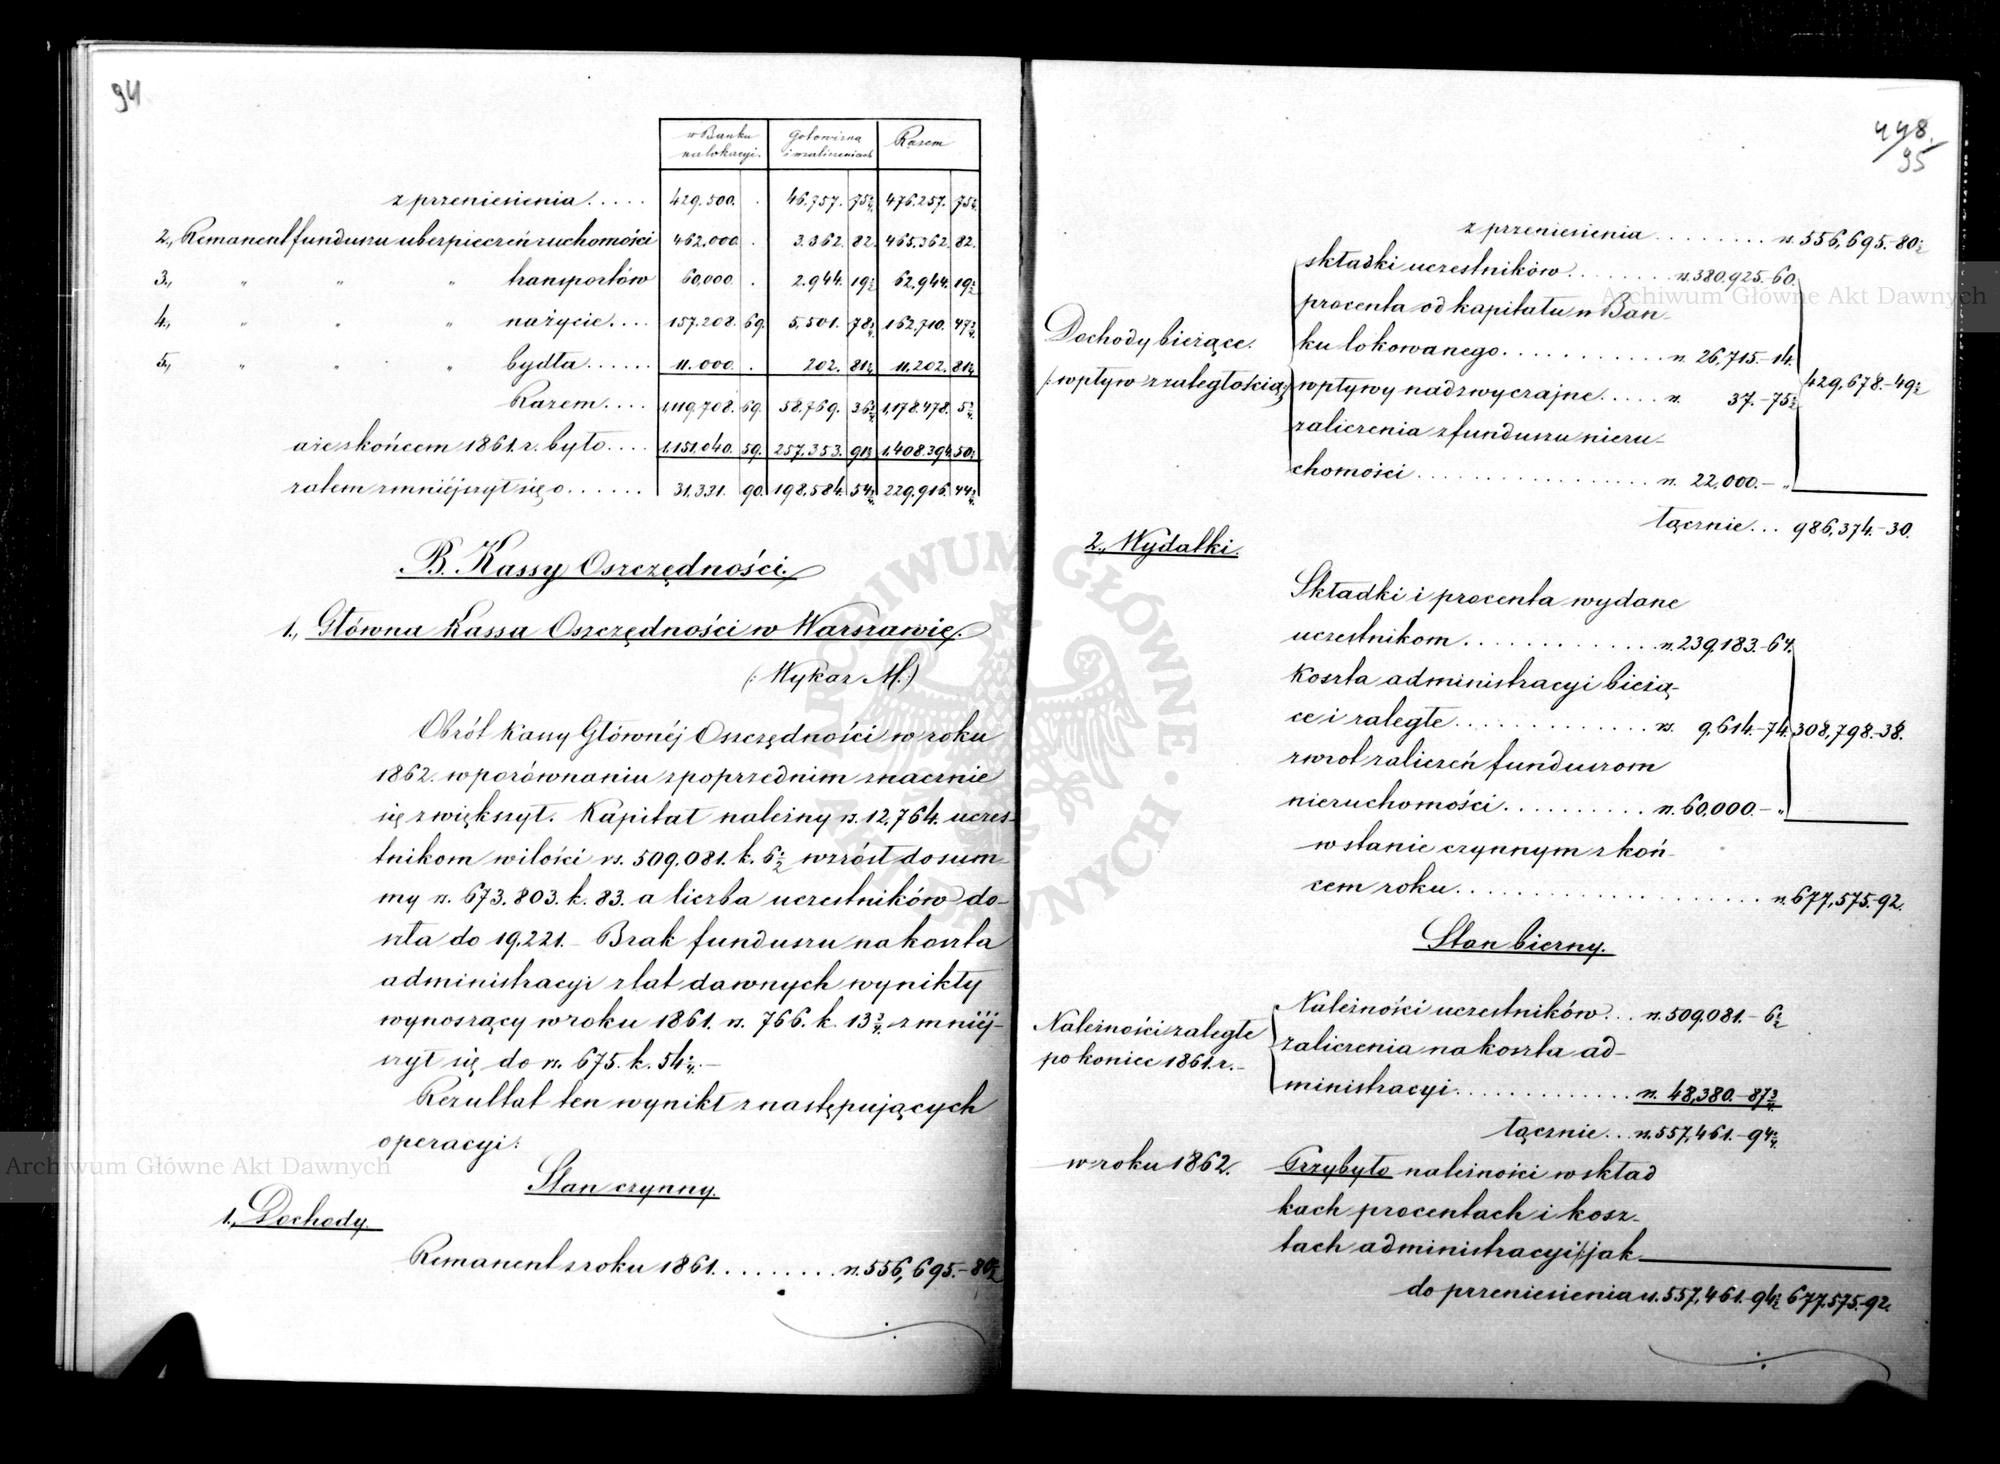 94
w Banku na lokacyi. | Gotowizna i w zaliczeniach | Razem
z przeniesienia..... 429.500. . 46.757. 75½ 476.257. 75½
2., Remanent funduszu ubezpieczeń ruchomości 462.000. . 3.362. 82. 465.362. 82.
3., " " " transportów 60,000. . 2.944. 19½ 62.944. 19½
4., " " " na życie.... 157.208. 69. 5,501. 78¾ 162,710. 47¾
5., " " " bydła...... 11.000. . 202. 81½ 11.202. 81½
Razem.... 1,119,708. 69. 58,769. 36¾ 1,178.478. 5¾
a że z końcem 1861. r. było.... 1.151.040. 59. 257.353. 91½ 1,408.394. 50½
zatem zmniejszył się o...... 31.331. 90. 198,584. 54¾ 229,916. 44¾
B. Kassy Oszczędności.
1., Główna Kassa Oszczędności w Warszawie.
(: Wykaz M.:)
Obrót Kassy Głównéj Oszczędności w roku
1862. w porównaniu z poprzednim znacznie
się zwiększył. Kapitał należny rs. 12,764. uczes-
tnikom w ilości rs. 509.081. k. 6½ wzróst do sum-
my rs. 673.803. k. 83. a liczba uczestników do-
szła do 19,221. – Brak funduszu na koszta
administracyi z lat dawnych wynikły
wynoszący w roku 1861. rs. 766. k. 13¾ zmniéj-
szył się do rs. 675. k. 54¼. –
Rezultat ten wynikł z następujących
operacyi:
Stan czynny.
1., Dochody.
Remanent z roku 1861. ........ rs. 556,695. – 80½
448.
95
z przeniesienia ........ rs. 556,695. – 80½
Dochody bieżące.
(: wpływ z zaległością:)
składki uczestników ....... rs. 380.925. – 60.
procenta od kapitału w Ban-
ku lokowanego. .......... rs. 26,715. – 14.
wpływy nadzwyczajne..... rs. 37. – 75½
429,678. – 49½
zaliczenia z funduszu nieru-
chomości ............... rs. 22.000. – "
łącznie... 986,374. – 30.
2., Wydatki.
Składki i procenta wydane
uczestnikom .............. rs. 239,183. – 64.
koszta administracyi bieżą-
ce i zaległe .............. rs. 9,614. – 74.
308,798. – 38.
zwrot zaliczeń funduszom
nieruchomości .......... rs. 60,000. – "
w stanie czynnym z koń-
cem roku ..................... rs. 677,575. – 92.
Stan bierny.
Należności zaległe
po koniec 1861. r. –
Należności uczestników... rs. 509,081. – 6½
zaliczenia na koszta ad-
ministracyi ............. rs. 48,380. – 87¾
łącznie... rs. 557,461. – 94¼
w roku 1862.
Przybyło należności w skład
kach procentach i kosz-
tach administracyi jak
do przeniesienia rs. 557,461. – 94¼ 677,575. – 92.
ARCHIWUM GŁÓWNE AKT DAWNYCH
Archiwum Główne Akt Dawnych
Archiwum Główne Akt Dawnych